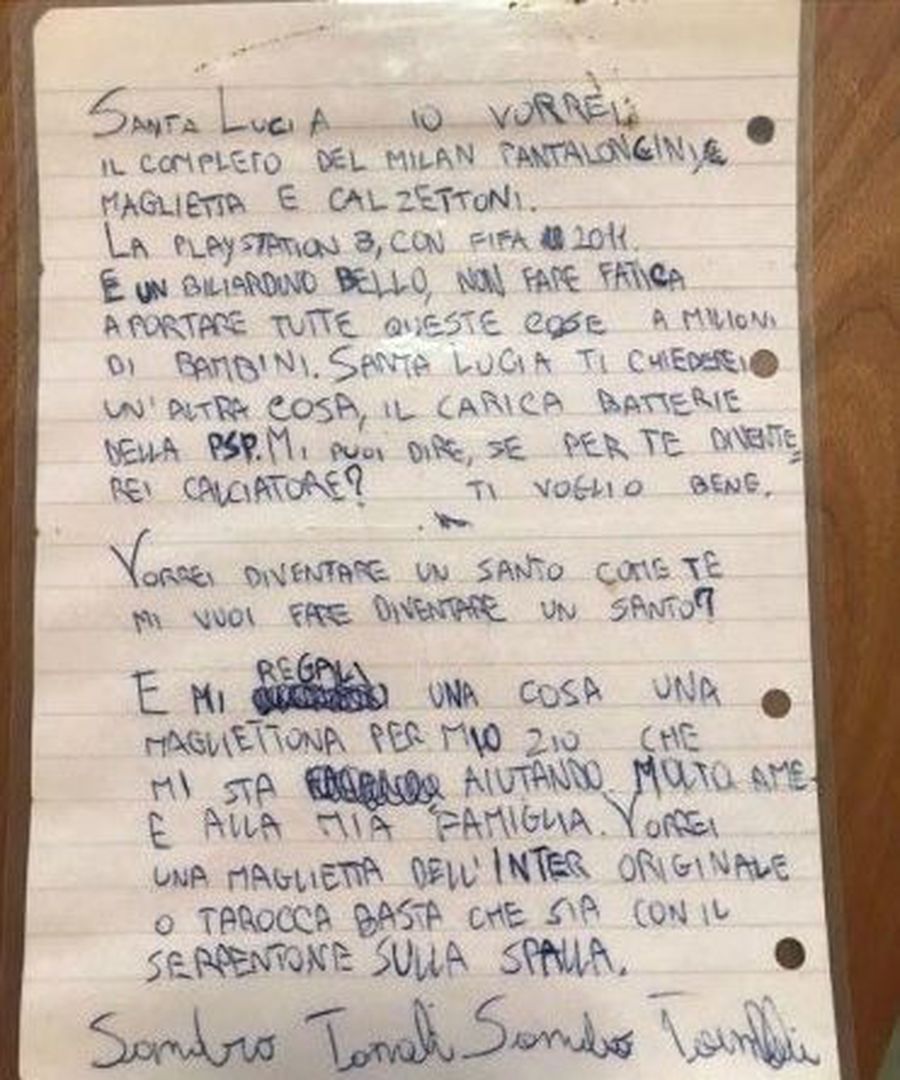 SANTA LUCIA IO VORREI:
IL COMPLETO DEL MILAN PANTALONCINI,
MAGLIETTA E CALZETTONI.
LA PLAYSTATION 3, CON FIFA 2011.
E UN BILIARDINO BELLO, NON FARE FATICA
A PORTARE TUTTE QUESTE COSE A MILIONI
DI BAMBINI. SANTA LUCIA TI CHIEDEREI
UN'ALTRA COSA, IL CARICA BATTERIE
DELLA PSP. MI PUOI DIRE, SE PER TE DIVENTE=
REI CALCIATORE? TI VOGLIO BENE.
VORREI DIVENTARE UN SANTO COME TE
MI VUOI FARE DIVENTARE UN SANTO?
E MI REGALI UNA COSA UNA
MAGLIETTONA PER MIO ZIO CHE
MI STA AIUTANDO MOLTO A ME
E ALLA MIA FAMIGLIA. VORREI
UNA MAGLIETTA DELL'INTER ORIGINALE
O TAROCCA BASTA CHE SIA CON IL
SERPENTONE SULLA SPALLA.
Sandro Tonali Sandro Tonali